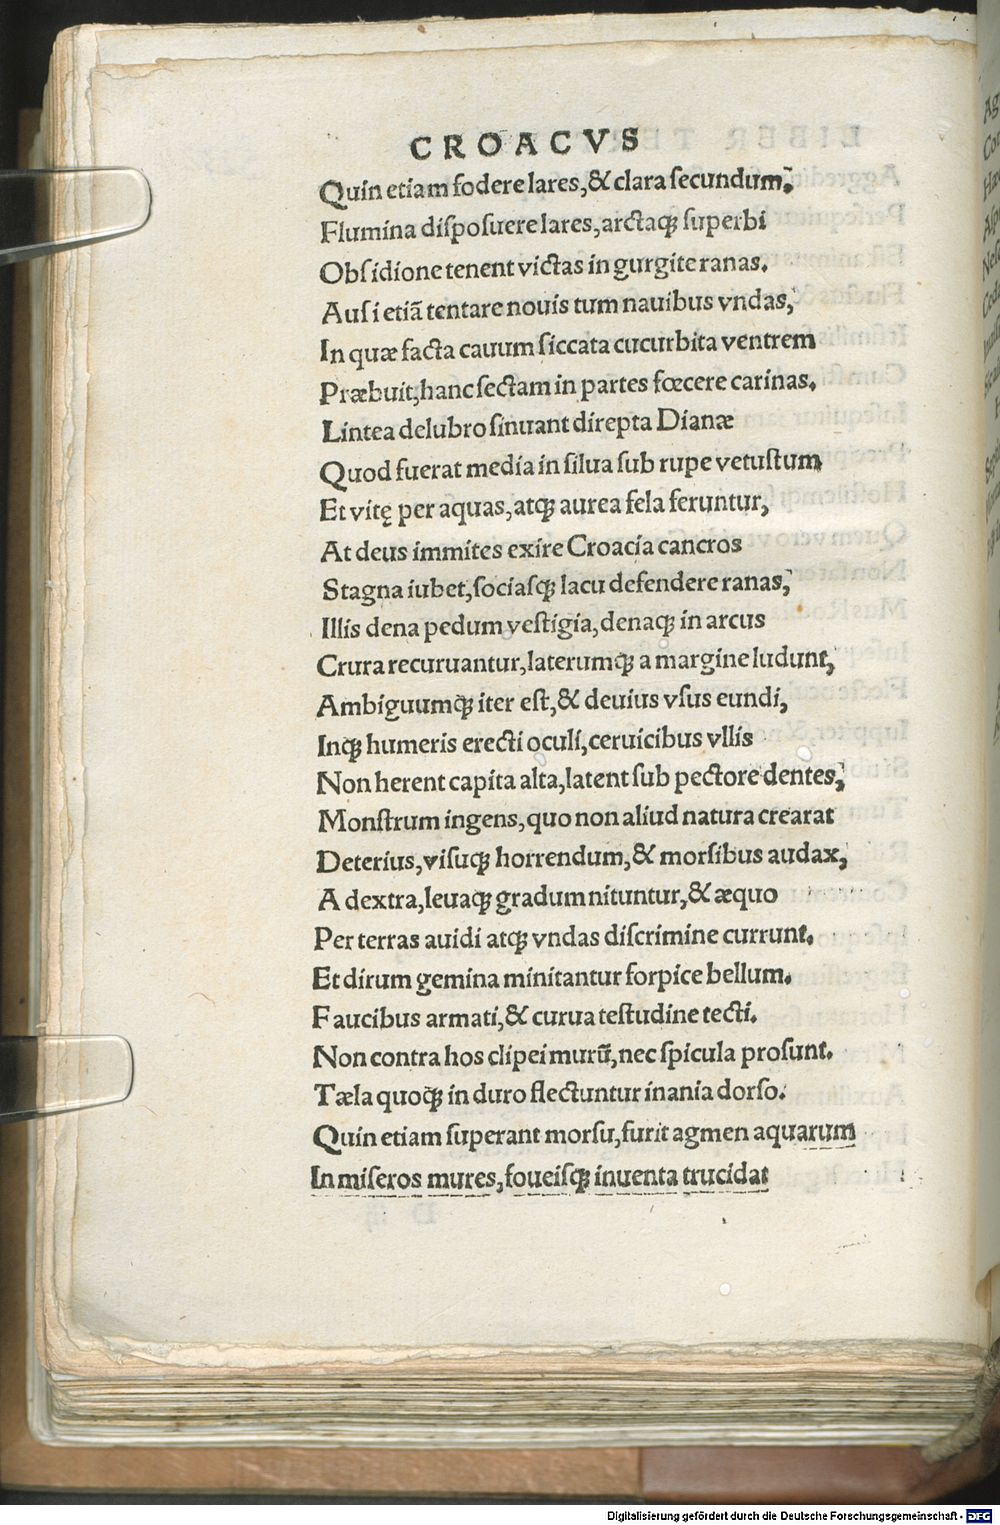 CROACVS
Quin etiam fodere lares, & clara secundum,
Flumina disposuere lares, arctaqꝫ superbi
Obsidione tenent victas in gurgite ranas.
Ausi etiā tentare nouis tum nauibus vndas,
In quæ facta cauum siccata cucurbita ventrem
Præbuit, hanc sectam in partes fœcere carinas.
Lintea delubro sinuant direpta Dianæ
Quod fuerat media in silua sub rupe vetustum
Et vitę per aquas, atqꝫ aurea fela feruntur,
At deus immites exire Croacia cancros
Stagna iubet, sociasqꝫ lacu defendere ranas,
Illis dena pedum vestigia, denaqꝫ in arcus
Crura recuruantur, laterumqꝫ a margine ludunt,
Ambiguumqꝫ iter est, & deuius vsus eundi,
Inqꝫ humeris erecti oculi, ceruicibus vllis
Non herent capita alta, latent sub pectore dentes,
Monstrum ingens, quo non aliud natura crearat
Deterius, visuqꝫ horrendum, & morsibus audax,
A dextra, leuaqꝫ gradum nituntur, & æquo
Per terras auidi atqꝫ vndas discrimine currunt.
Et dirum gemina minitantur forpice bellum.
Faucibus armati, & curua testudine tecti.
Non contra hos clipei murū, nec spicula prosunt.
Tæla quoqꝫ in duro flectuntur inania dorso.
Quin etiam superant morsu, furit agmen aquarum
In miseros mures, foueisqꝫ inuenta trucidat
Digitalisierung gefördert durch die Deutsche Forschungsgemeinschaft - DFG